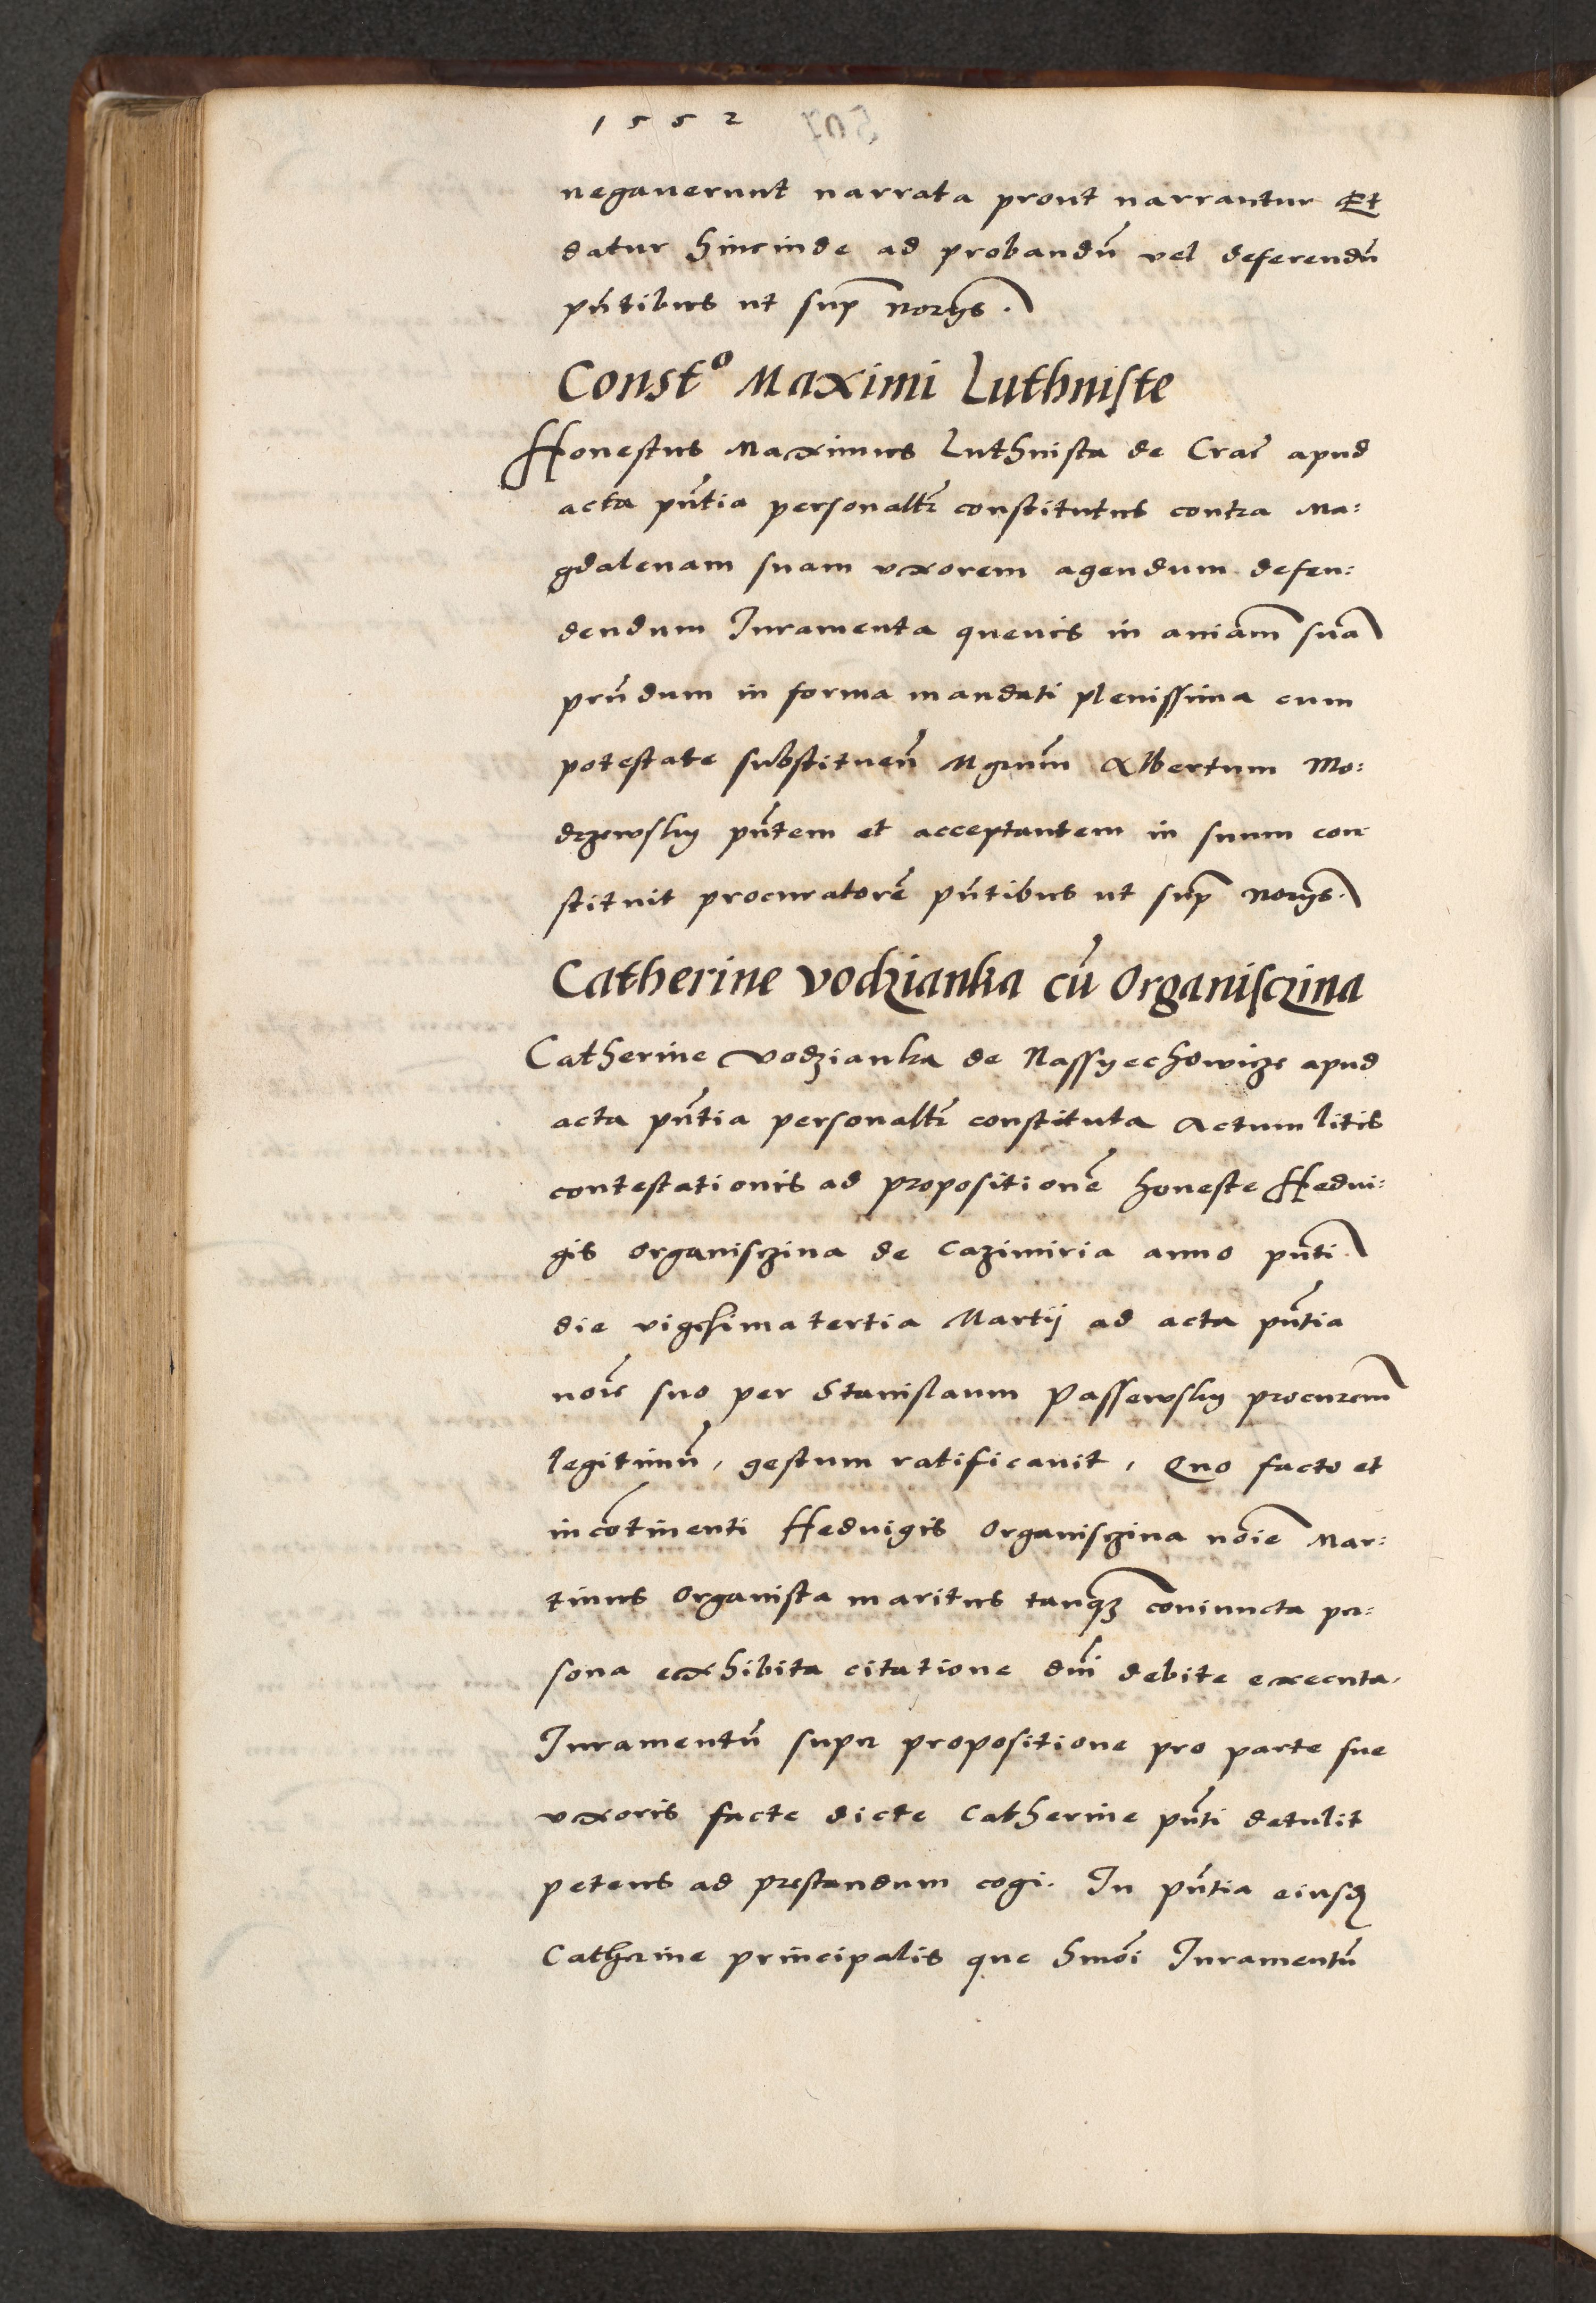 1552
negaverunt narrata prout narrantur Et
datur hincinde ad probandū vel deferendū
pn̄tibus ut sup̄ norijs.
Constᵒ Maximi Luthniste
Honestus Maximus Luthnista de Crac̄ apud
acta pn̄tia personalr̄ constitutus contra Ma:
gdalenam suam uxorem agendum defen:
dendum Iuramenta quevis in aniam̄ suā
prn̄dum in forma mandati plenissima cum
potestate substituen̄ Mgrum̄ Albertum Mo:
drzewsky pn̄tem et acceptantem in suum con
stituit procuratorē pn̄tibus ut sup̄ norijs.
Catherine Vodzianka cū Organisczina
Catherine Vodzianka de Nassyechowicze apud
acta pn̄tia personalr̄ constituta Actum litis
contestationis ad propositionē honeste Hedvi:
gis organisczina de Cazimiria anno pn̄ti
die vigesima tertia Martij ad acta pn̄tia
noīe suo per Stanislaum Passewsky procurem̄
legitimū, gestum ratificavit, Quo facto et
incōtinenti Hedvigis organisczina noīe Mar:
tinus Organista maritus tanqꝫ coniuncta per:
sona exhibita citatione dn̄i debite executa.
Iuramentū super propositione pro parte sue
uxoris facte dicte Catherine pn̄ti detulit
petens ad prestandum cogi. In pn̄tia eiusd̄
Catherine principalis que hmōi Iuramentū